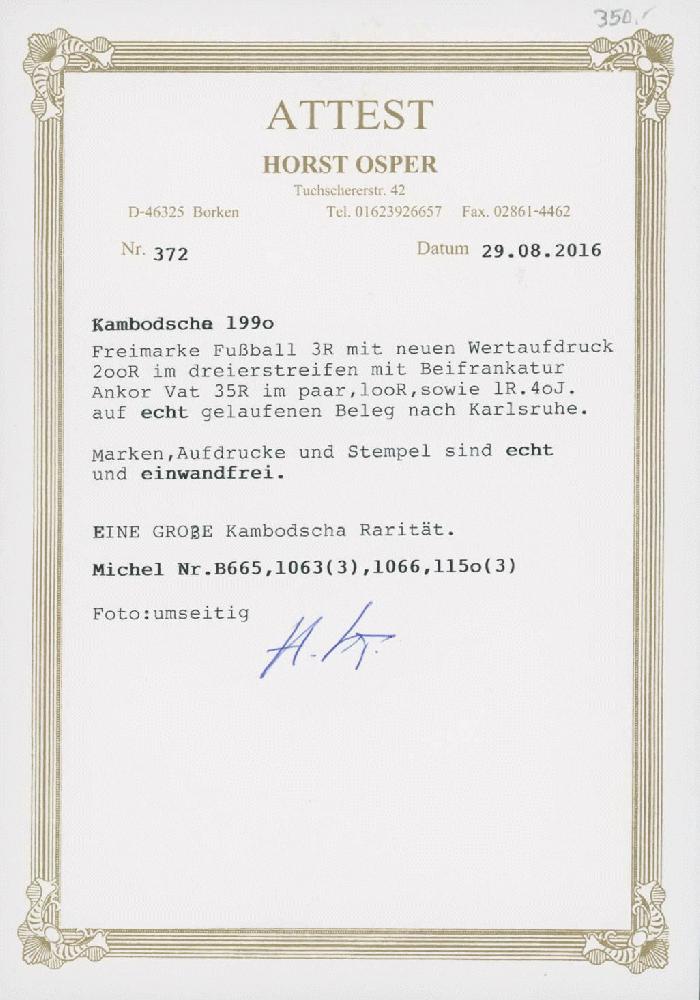 350.-
ATTEST
HORST OSPER
Tuchschererstr. 42
D-46325 Borken Tel. 01623926657 Fax. 02861-4462
Nr. 372 Datum 29.08.2016
Kambodscha 199o
Freimarke Fußball 3R mit neuen Wertaufdruck
2ooR im dreierstreifen mit Beifrankatur
Ankor Vat 35R im paar,looR,sowie 1R.4oJ.
auf echt gelaufenen Beleg nach Karlsruhe.
Marken,Aufdrucke und Stempel sind echt
und einwandfrei.
EINE GROßE Kambodscha Rarität.
Michel Nr.B665,1063(3),1066,115o(3)
Foto:umseitig